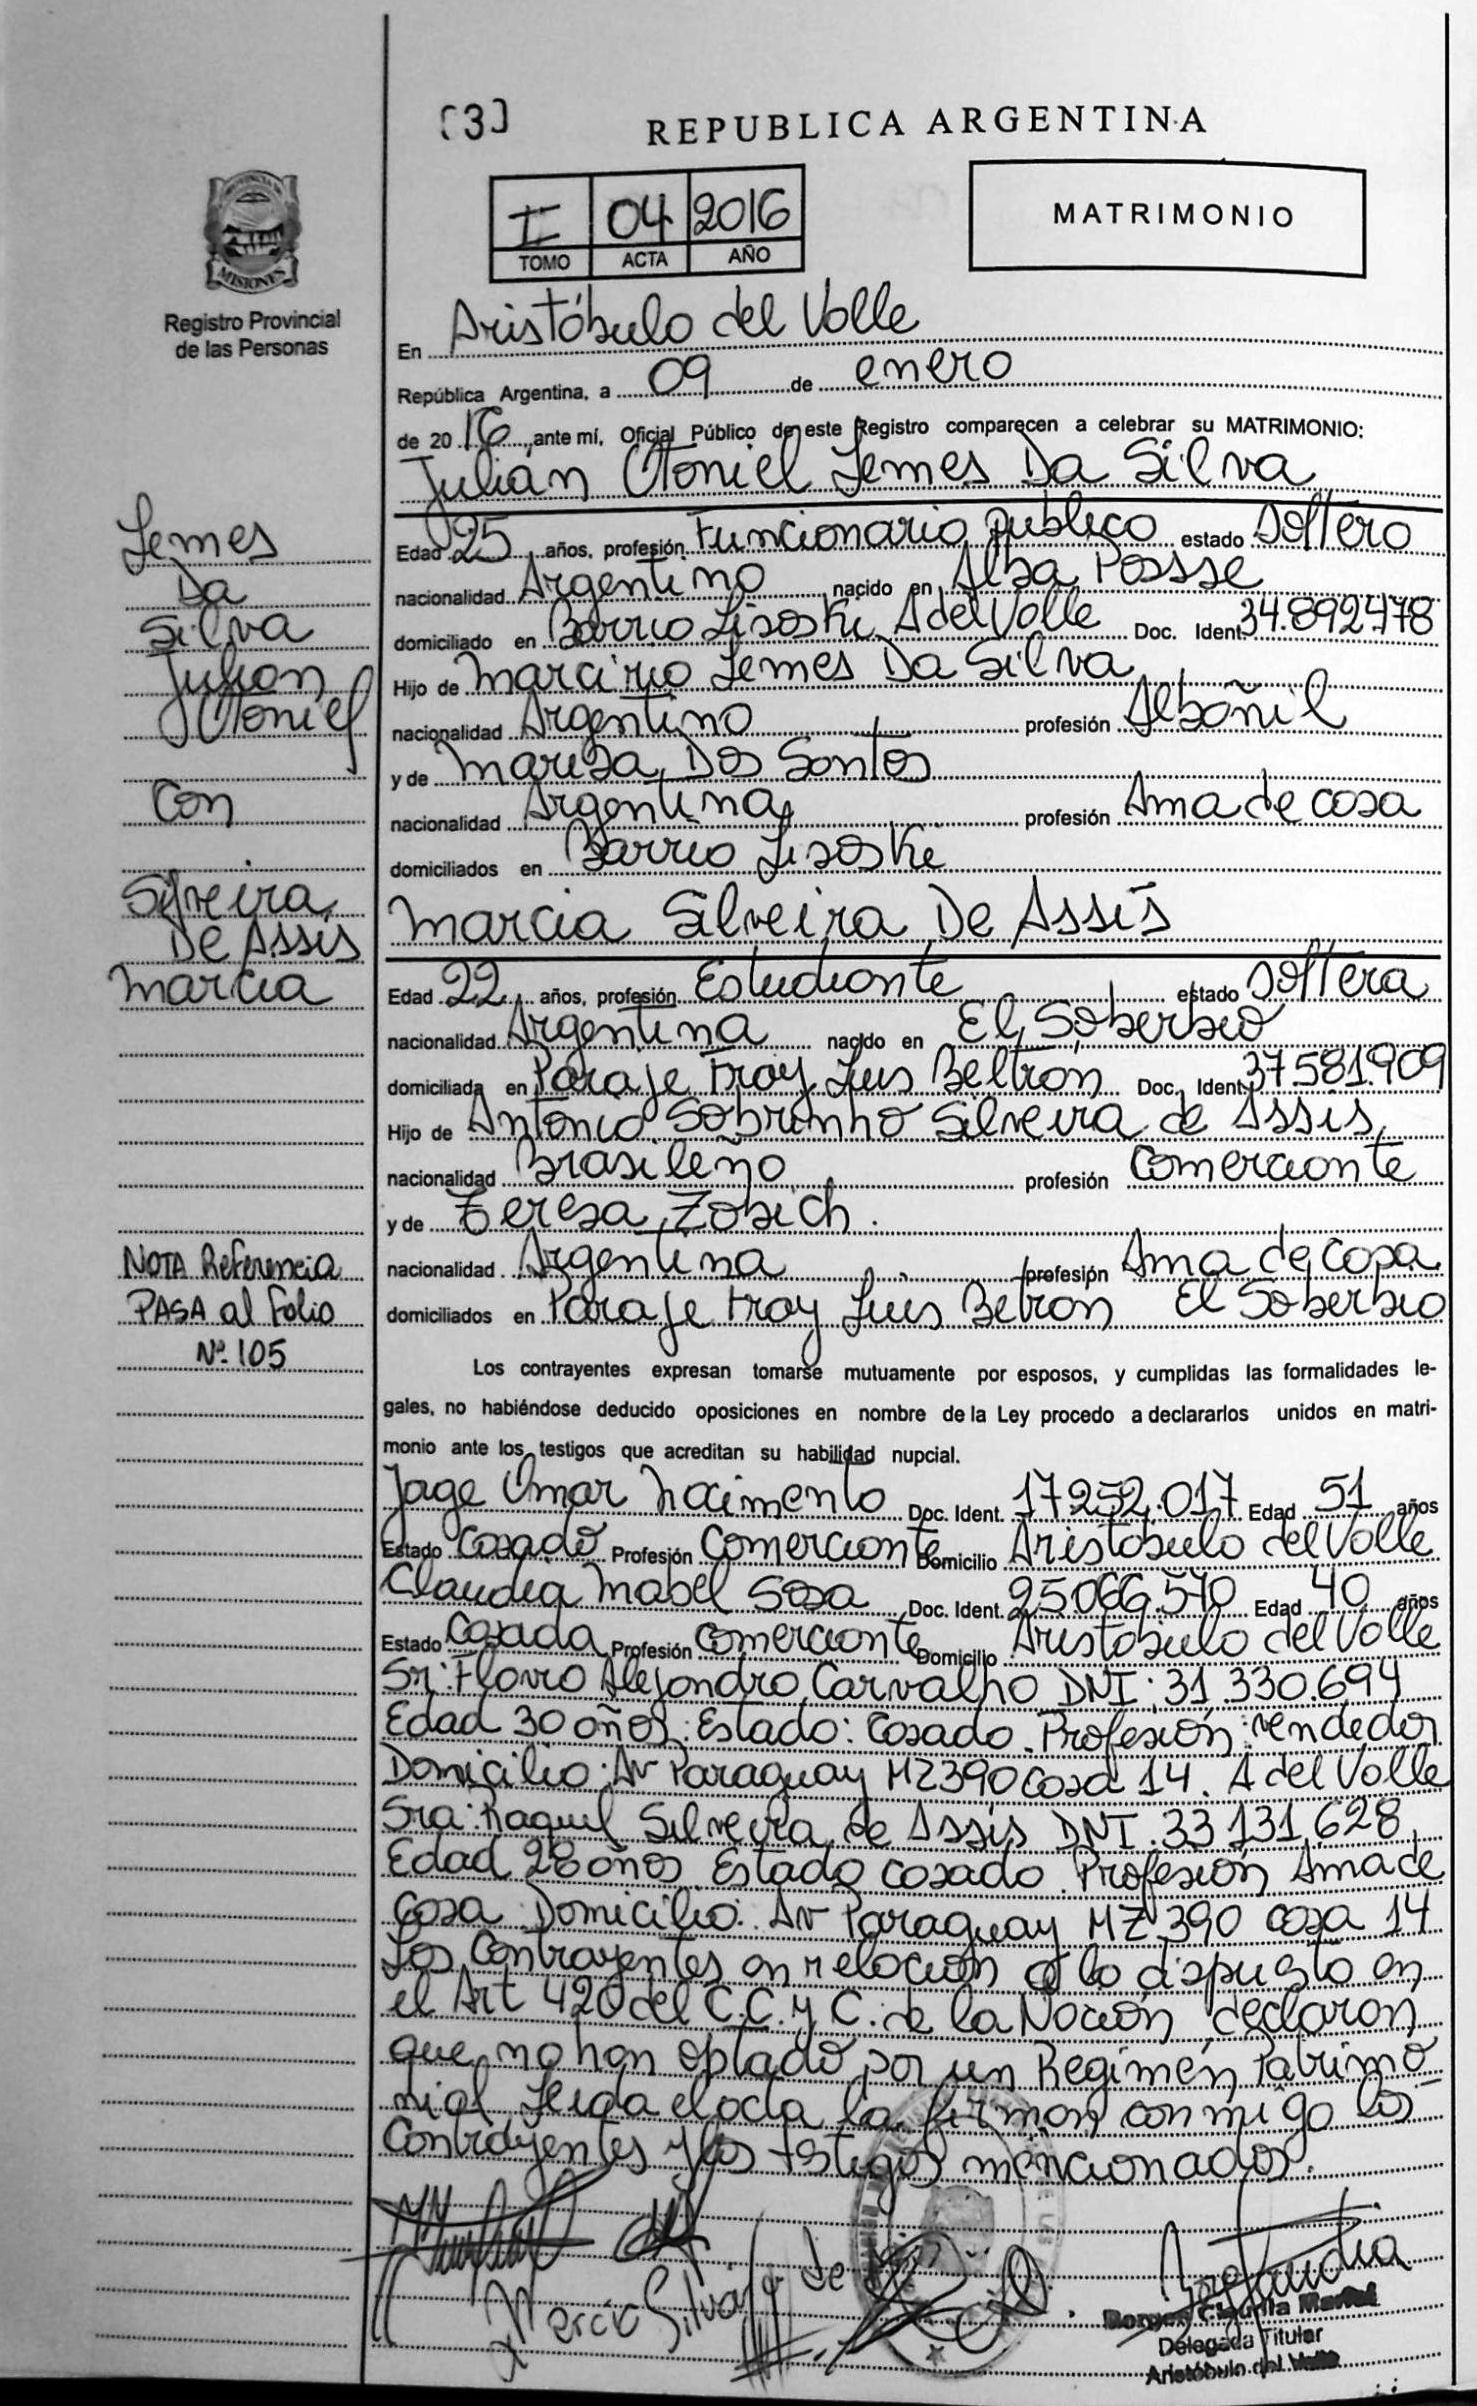 [3]
REPUBLICA ARGENTINA
PROVINCIA DE
MISIONES
Registro Provincial
de las Personas
I 04 2016
TOMO ACTA AÑO
MATRIMONIO
En Aristóbulo del Valle
República Argentina, a 09 de enero
de 2016, ante mí, Oficial Público de este Registro comparecen a celebrar su MATRIMONIO:
Julián Otoniel Lemes Da Silva
Edad 25 años, profesión Funcionario publico estado Soltero
nacionalidad Argentino nacido en Alba Posse
domiciliado en Barrio Lisoski A del Valle Doc. Ident. 34.892.478
Hijo de Marcirio Lemes Da Silva
nacionalidad Argentino profesión Albañil
y de Mariza Dos Santos
nacionalidad Argentina profesión Ama de casa
domiciliados en Barrio Lisoski
Marcia Silveira De Assis
Edad 22 años, profesión Estudiante estado Soltera
nacionalidad Argentina nacido en El Soberbio
domiciliada en Paraje Fray Luis Beltrán Doc. Ident. 37.581.909
Hijo de Antonio Sobrinho Silveira de Assis
nacionalidad Brasileño profesión Comerciante
y de Teresa Zobich.
nacionalidad Argentina profesión Ama de casa
domiciliados en Paraje Fray Luis Betran El Soberbio
Los contrayentes expresan tomarse mutuamente por esposos, y cumplidas las formalidades le-
gales, no habiéndose deducido oposiciones en nombre de la Ley procedo a declararlos unidos en matri-
monio ante los testigos que acreditan su habilidad nupcial.
Jage Omar Nacimento Doc. Ident. 17252.017 Edad 51 años
Estado Casado Profesión Comerciante Domicilio Aristobulo del Valle
Claudia Mabel Sosa Doc. Ident. 25.066.570 Edad 40 años
Estado Casada Profesión Comerciante Domicilio Aristobulo del Valle
Sr: Flavio Alejandro Carvalho DNI: 31.330.694
Edad 30 años: Estado: Casado. Profesión: vendedor
Domicilio: Av Paraguay MZ390 casa 14. A del Valle
Sra: Raquel Silveira de Assis DNI. 33.131.628
Edad 28 años. Estado casado. Profesión Ama de
casa. Domicilio: Av Paraguay MZ 390 casa 14
Los Contrayentes en relación a lo dispuesto en
el Art 420 del C.C. y C. de la Nación declaran
que no han optado por un Regimén Patrimo
nial Leida el acta la firman conmigo los
Contrayentes y los testigos mencionados.
Marcia Silveira de
Borges Claudia Mabel
Delegada Titular
Aristóbulo del Valle
Lemes
Da
Silva
Julian
Otoniel
Con
Silveira
De Assis
Marcia
NOTA Referencia
PASA al Folio
Nº 105